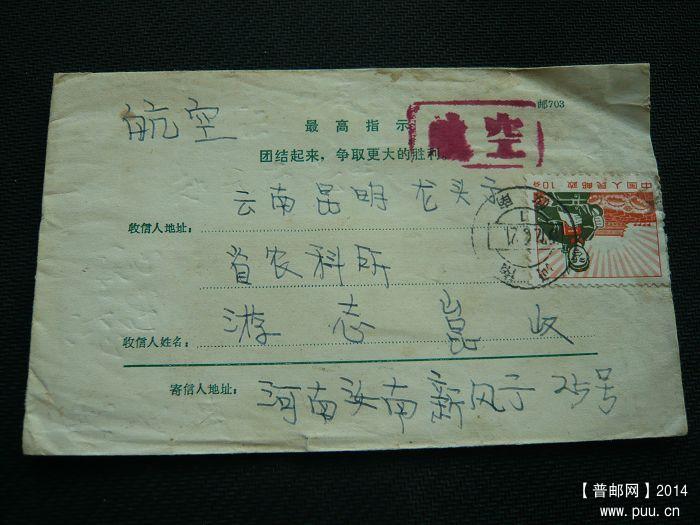 航空
邮703
最高指示
航空
团结起来，争取更大的胜利。
云南昆明龙头
收信人地址：
省农科所
中国人民邮政 10分
收信人姓名：
游志 收
寄信人地址：
河南汝南新风 25号
【普邮网】2014
www.puu.cn